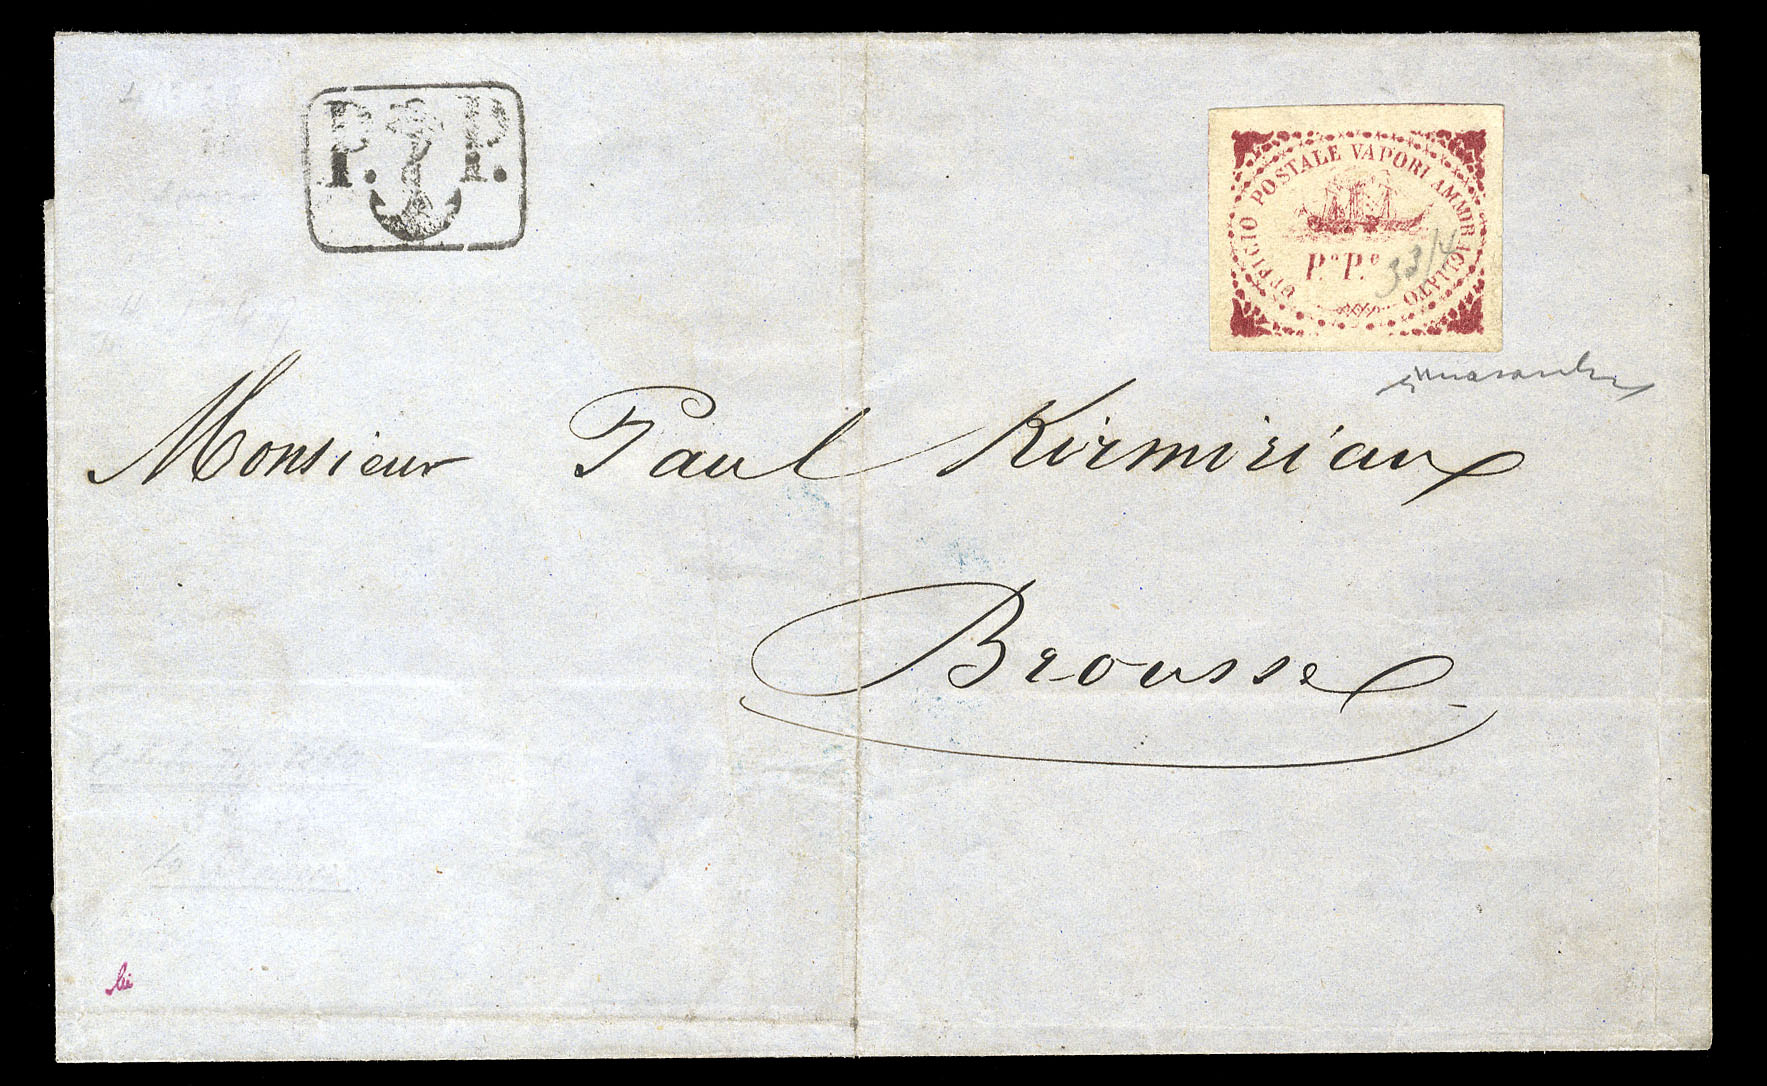 P. P.
UFFICIO POSTALE VAPORI AMMIRAGLIATO
P.º P.º
33/4
Monsieur Paul Kirmizian
Brousse